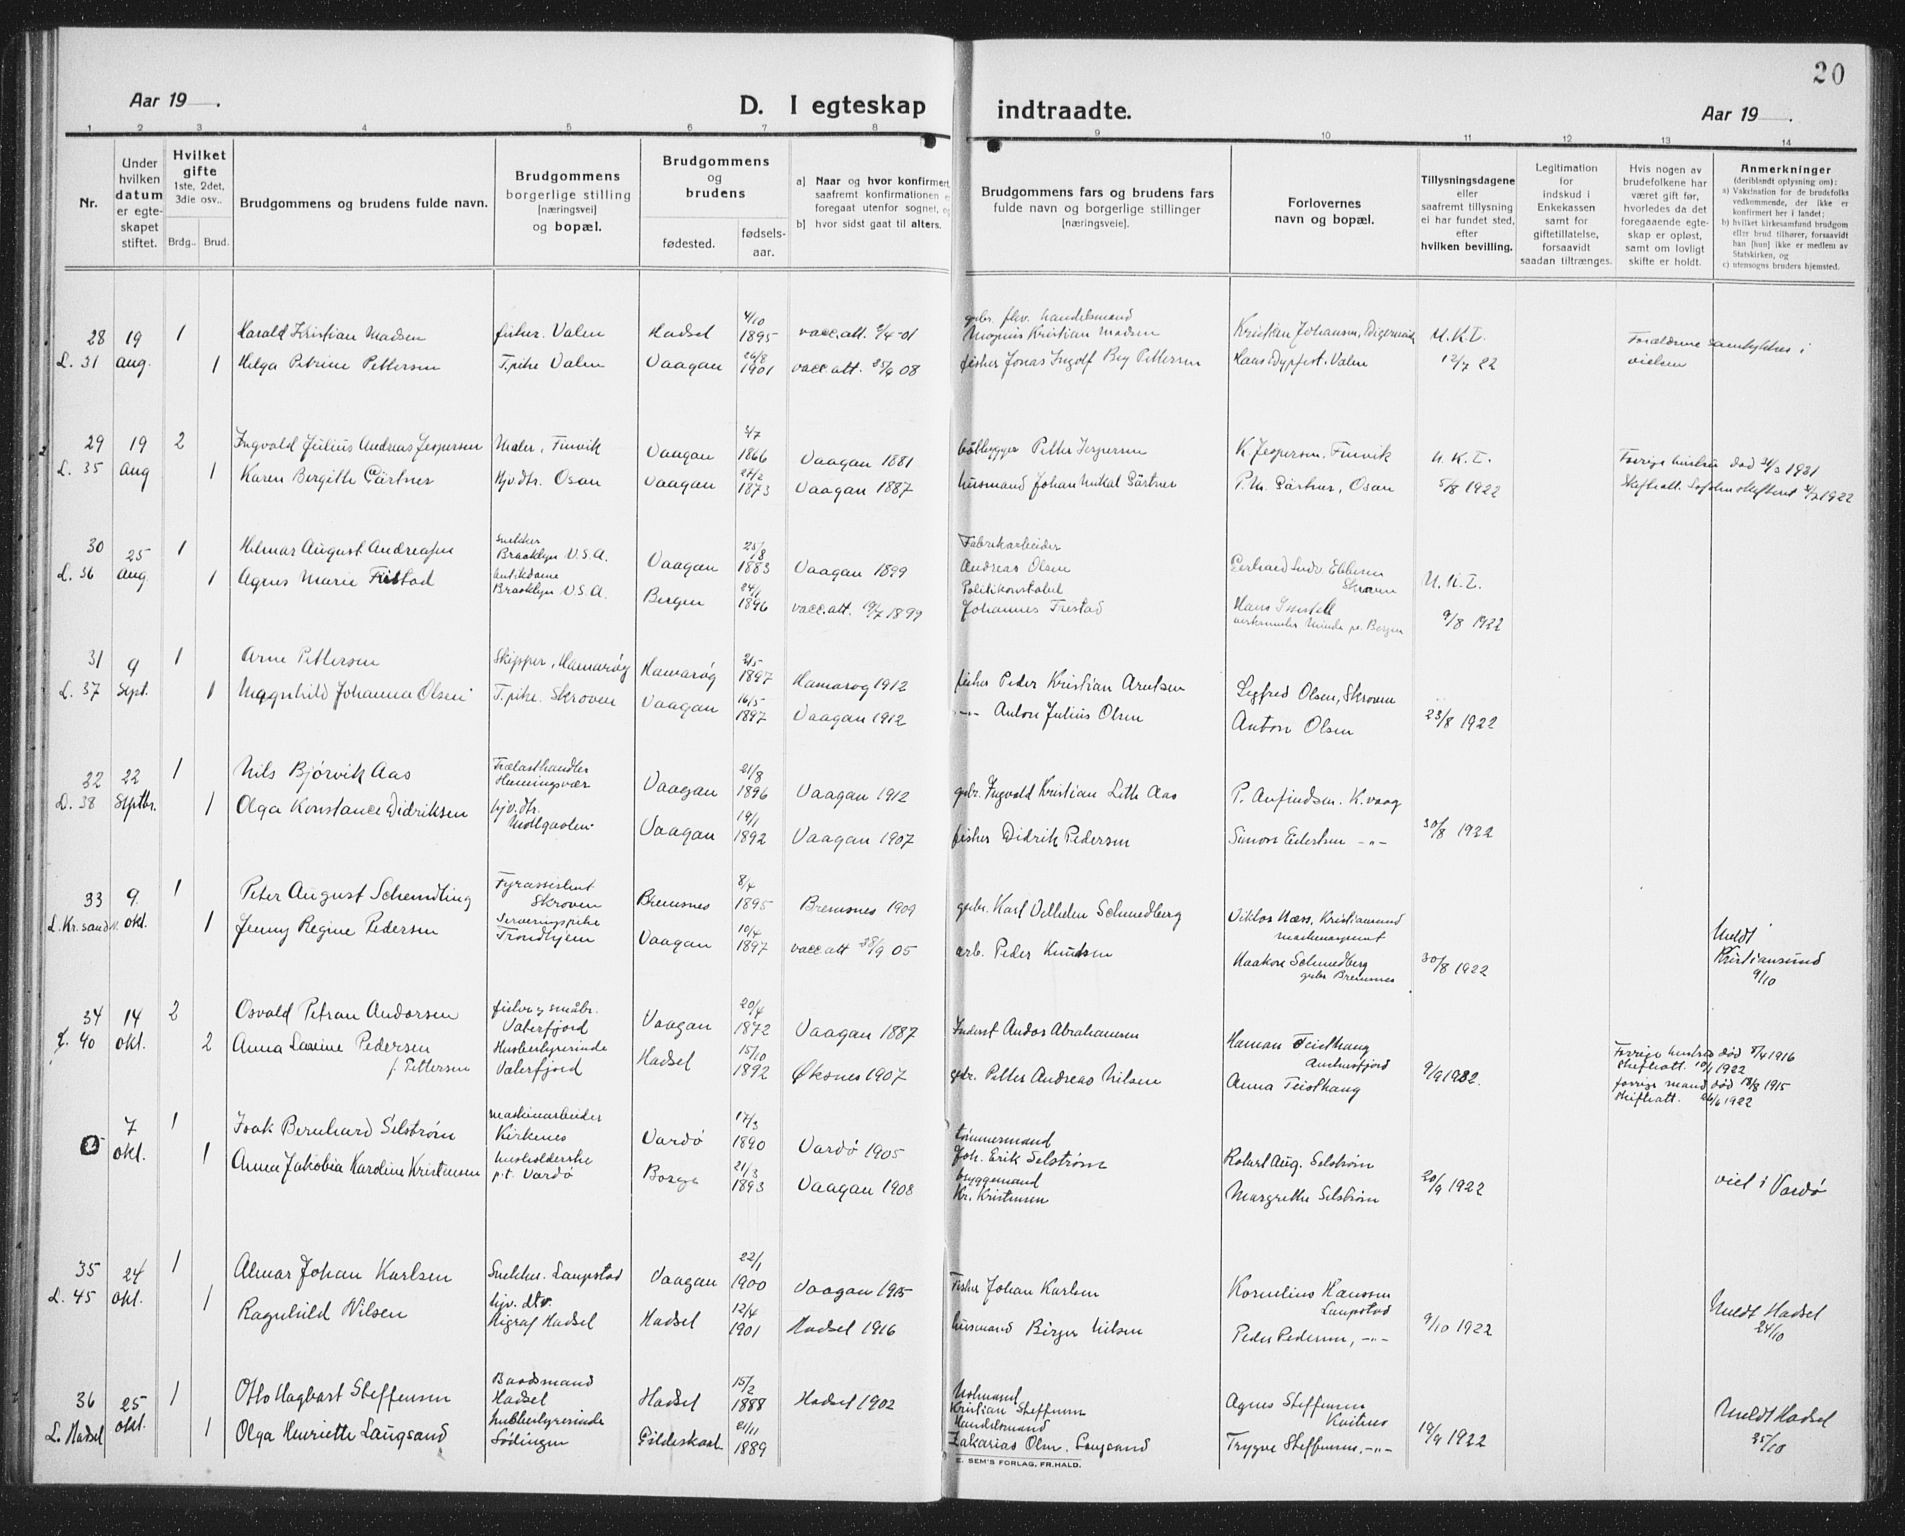 20
Aar 19 .
D. I egteskap indtraadte.
Aar 19 .
1 2 3 4 5 6 7 8 9 10 11 12 13 14
Nr.
Under hvilken datum er egteskapet stiftet.
Hvilket gifte 1ste, 2det, 3die osv..
Brdg.. Brud.
Brudgommens og brudens fulde navn.
Brudgommens borgerlige stilling [næringsvei] og bopæl.
Brudgommens og brudens
fødested.
fødselsaar.
a) Naar og hvor konfirmert, saafremt konfirmationen foregaat utenfor sognet, og
b) hvor sidst gaat til alters.
Brudgommens fars og brudens fars fulde navn og borgerlige stillinger [næringsveie].
Forlovernes navn og bopæl.
Tillysningsdagene eller saafremt tillysning ei har fundet sted, efter hvilken bevilling.
Legitimation for indskud i Enkekassen samt for giftetillatelse, forsaavidt saadan tiltrænges.
Hvis nogen av brudefolkene har været gift før, hvorledes da det foregaaende egteskap er opløst, samt om lovligt skifte er holdt.
Anmerkninger (deriblandt oplysning om):
a) Vakcination for de brudefolks vedkommende, der ikke er konfirmert her i landet;
b) hvilket kirkesamfund brudgom eller brud tilhører, forsaavidt han [hun] ikke er medlem av Statskirken, og
c) utensogns bruders hjemsted.
28 19 1 Harald Kristian Madsen fisker. Valen Hadsel 4/10 1895 vacc.att. 2/4-01 gbr. fhv. handelsmand Mognus Kristian Madsen Kristian Johansen, Digermulen U.K.I. Forældrene samtykker i
L. 31 aug. 1 Helga Petrine Pettersen T.pike Valen Vaagan 26/8 1901 vacc.att. 25/6 08 fisker Jonas Ingolf Berg Pettersen Hans Dypfest. Valen 12/7 22 vielsen
29 19 2 Ingvald Julius Andreas Jespersen Maler, Finvik Vaagan 3/7 1866 Vaagan 1881 baatbygger Petter Jespersen K. Jespersen. Finvik U.K.I. Forrige hustru død 21/3 1921
L. 35 aug 1 Karen Bergitte Gärtner Hjv.dtr. Osan Vaagan 27/2 1873 Vaagan 1887 husmand Johan Mikal Gärtner P.M. Gärtner, Osan 5/8 1922 Skifteatt.
30 25 1 Helmar August Andreassen Snekker Braaklyn U.S.A. Vaagan 25/8 1883 Vaagan 1899 Fabrikarbeider Andreas Olsen Gerhard Ludv. Ebbesen Skroven U.K.I.
L. 36 Aug 1 Agnes Marie Fristad Braaklyn U.S.A. Bergen 24/1 1896 vacc.att. 19/7 1899 Politikonstabel Johannes Trestad Hans 9/8 1922
31 9 1 Arne Pettersen Skipper, Hamarøy Hamarøy 2/5 1897 Hamarøg 1912 fisker Peder Kristian Arntsen Sigfred Olsen, Skroven
L. 37 Sept. 1 Magnhild Johanna Olsen T.pike. Skroven Vaagan 16/5 1897 Vaagan 1912 -"- Anton Julius Olsen Anton Olsen 23/8 1922
32 22 1 Nils Bjørvik Aas Trælasthandler Henningsvær Vaagan 21/8 1896 Vaagan 1912 gbr. Ingvald Kristian Lith Aas P. Arnfindsen. K.vaag
D. 38 Septbr. 1 Olga Konstance Didriksen hjv.dtr. Vaagan 19/1 1892 Vaagan 1907 fisker Didrik Pedersen Simon Eilertsen -"- 30/8 1922
33 9. 1 Peter August Schmedling Fyrassistent Skroven Bremsnes 8/4 1895 Bremsnes 1909 gbr. Karl Vilhelm Schmedberg Viktor Næss, Kristiansund
L. Kr.sand N. okt. 1 Jenny Regine Pedersen Serveringspike Trondhjem Vaagan 10/4 1897 vacc.att 28/9 05 arb. Peder Knudsen Haakon Schmedberg gbr. Bremsnes 30/8 1922 Meldt Kristiansund 9/10
34 14 2 Osvald Petran Andorsen fisker og småbr. Vaterfjord Vaagan 20/4 1872 Vaagan 1887 Inderst Andor Abrahamsen Haman Teisthaug Austnesfjord Forrige hustru død 8/4 1916 skifteatt. 10/1 1922
L. 40 okt. 2 Anna Lasine Pedersen f. Pettersen Husbestyrerinde Vaterfjord Hadsel 15/10 1892 Øksnes 1907 gbr. Petter Andreas Nilsen Anna Teisthaug 9/9 1922. forrige mand død 18/8 1915 skifteatt. 26/6 1922
7 okt. 1 Isak Bernhard Selstrøm maskinarbeider Kirkenes Vardø 17/3 1890 Vardø 1905 tømmermand Joh. Erik Selstrøm Robert Aug. Selstrøm
1 Anna Jakobia Karoline Kristensen husholderske p.t. Vardø Borge 21/3 1893 Vaagan 1908 bryggemand Kr. Kristensen Margrethe Selstrøm 20/9 1922 viet i Vardø
35 24 1 Almar Johan Karlsen Snekker. Laupstad Vaagan 22/1 1900 Vaagan 1915 Fisker Johan Karlsen Kornelius Hanssen Laupstad
L. 45 okt. 1 Ragnhild Nilsen hjv. dtr. Higraf Hadsel Hadsel 12/4 1901 Hadsel 1916 husmand Birger Nilsen Peder Pedersen, -"- 9/10 1922 Meldt Hadsel 24/10
36 25 1 Otto Hagbart Steffensen Baadsmand Hadsel Hadsel 15/2 1888 Hadsel 1902 Kristian Steffensen Agnes Steffensen Kvitnes
L. Hadsel okt. 1 Olga Henriette Langsand husbestyrerinde Lødingen Gildeskaal 21/11 1889 Handelsmand Zakarias Olm. Langsand Trygve Steffensen, -"- 19/9 1922 Meldt Hadsel 25/10
E. SEM'S FORLAG, FR.HALD.